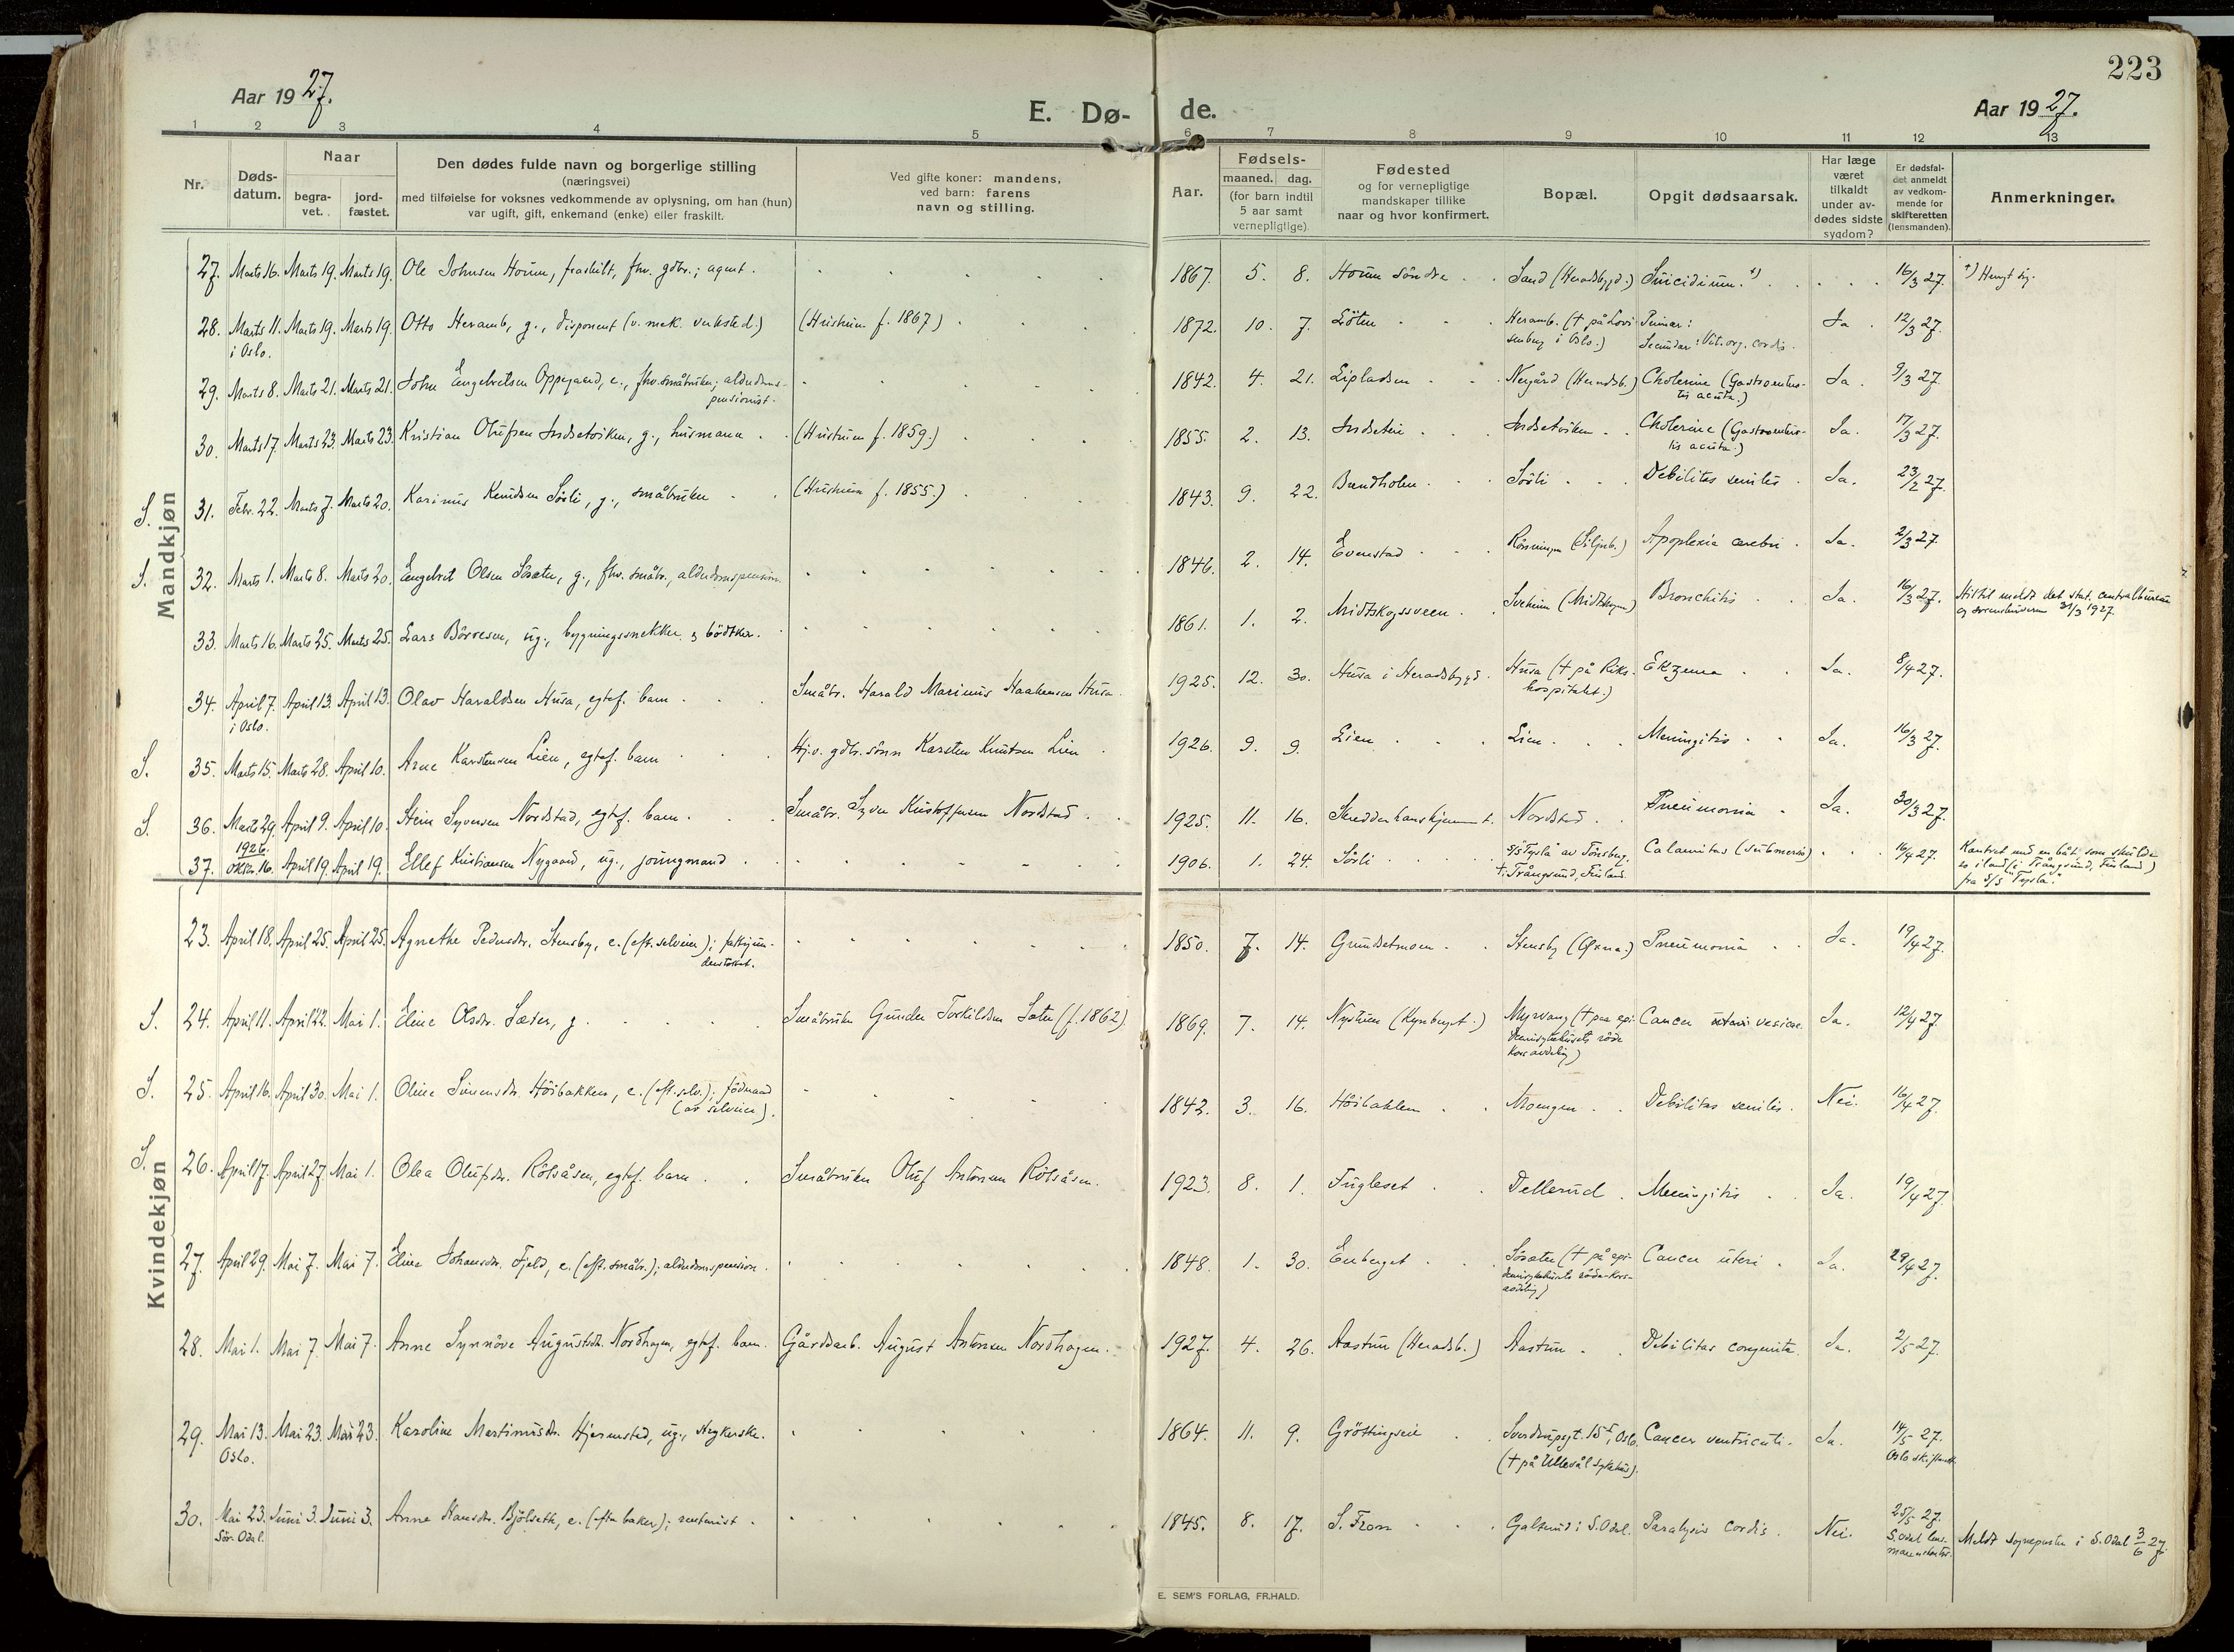 223
Aar 1927.
E. Dø- de.
Aar 1927.
1 2 3 4 5 6 7 8 9 10 11 12 13
Nr.
Døds-
datum.
Naar
begra-
vet.
jord-
fæstet.
Den dødes fulde navn og borgerlige stilling
(næringsvei)
med tilføielse for voksnes vedkommende av oplysning, om han (hun)
var ugift, gift, enkemand (enke) eller fraskilt.
Ved gifte koner: mandens,
ved barn: farens
navn og stilling.
Aar.
Fødsels-
maaned. dag.
(for barn indtil
5 aar samt
vernepligtige)
Fødested
og for vernepligtige
mandskaper tillike
naar og hvor konfirmert.
Bopæl.
Opgit dødsaarsak.
Har læge
været
tilkaldt
under av-
dødes sidste
sygdom?
Er dødsfal-
det anmeldt
av vedkom-
mende for
skifteretten
(lensmanden).
Anmerkninger.
Mandkjøn
27. Marts 16. Marts 19. Marts 19. Ole Johnsen Horne, fraskilt, fhv. gdbr.; agent. 1867. 5. 8. Horne søndre Sand (Heradsbygd.) Suicidium. +) 16/3 27. +) Hengt sig.
28. Marts 11. Marts 19. Marts 19. Otto Heramb, g., disponent (v. mek. verksted.) (Hustruen f. 1867) 1872. 10. 7. Löten Heramb. († på Lovi Primær: Ja. 12/3 27.
i Oslo. senberg i Oslo.) Secundær: Vit. org. cordis.
29. Marts 8. Marts 21. Marts 21. John Engebretsen Oppegaard, e., fhv. småbruker; alderdoms- 1842. 4. 21. Lipladsen Nygård (Heradsb.) Cholerine (Gastroenteri- Ja. 9/3 27.
pensionist. tis acuta.)
30. Marts 17. Marts 23. Marts 23. Kristian Olufsen Indsetviken, g., husmann (Hustruen f. 1859.) 1855. 2. 13. Indsetvi Indsetviken Cholerine (Gastroenteri- Ja. 17/3 27.
tis acuta.)
S. 31. Febr. 22. Marts 7. Marts 20. Karinus Knudsen Sörli, g., småbruker (Hustruen f. 1855.) 1843. 9. 22. Brendholen Sörli Debilitas senilis Ja. 23/2 27.
S. 32. Marts 1. Marts 8. Marts 20. Engebret Olsen Söræter, g., fhv. småbr., alderdomspension. 1846. 2. 14. Evenstad (Siljub.) Apoplexia cerebri Ja. 2/3 27.
33. Marts 16. Marts 25. Marts 25. Lars Börresen, ug., bygningssnekker & bödtker. 1861. 1. 2. Midtskogssveen Sveheim (Midtskogen) Bronchitis Ja. 16/3 27. Hittil meldt det stat. centralbureau
og 31/3 1927.
34. April 7. April 13. April 13. Olav Haraldsen Husa, egtef. barn Småbr. Harald Marinus Haakensen Husa. 1925. 12. 30. Husa i Heradsbygd. Husa († på Riks- Ekzema Ja. 8/4 27.
i Oslo. hospitalet.)
S. 35. Marts 15. Marts 28. April 10. Arne Karstensen Lien, egtef. barn Hj.v. gdbr. sönn Karsten Knutsen Lien 1926. 9. 9. Lien Lien Meningitis Ja. 16/3 27.
S. 36. Marts 29. April 9. April 10. Stein Syversen Nordstad, egtef. barn. Småbr. Syver Kristoffersen Nordstad 1925. 11. 16. Skredderhanskjernet. Nordstad Pneumonia Ja. 30/3 27.
1926.
37. Oktbr. 16. April 19. April 19. Ellef Kristiansen Nygaard, ug., joungmand 1906. 1. 24. Sörli S/S "Tysla" av Tönsberg. Calamitas (submersio) 16/4 27. Kantret med en båt, som skulde
†i Trångsund, Finland. ro iland (i Trångsund, Finland)
fra S/S "Tysla".
Kvindekjøn
23. April 18. April 25. April 25. Agnethe Pedersdr. Stensby, e. (eft. selveier); fattigun- 1850. 7. 14. Grundsetmoen Stensby (Öxna.) Pneumonia Ja. 19/4 27.
derstöttet.
S. 24. April 11. April 22. Mai 1. Eline Olsdr. Sæter, g. Småbruker Gunder Torkildsen Sæter (f. 1862) 1869. 7. 14. Nystuen (Kynberget.) Myrvang († paa epi- Cancer uteri vesicae. Ja. 12/4 27.
demisykehusets röde
Kors avdeling)
S. 25. April 16. April 30. Mai 1. Oline Simensdr. Höibakken, e. (eft. selv.); föderaad 1842. 3. 16. Höibakken Moengen Debilitas senilis. Nei. 16/4 27.
(av selveier).
S. 26. April 17. April 27. Mai 1. Olea Olufsdr. Rölsåsen, egtef. barn Småbruker Oluf Antonsen Rölsåsen. 1923. 8. 1. Fugleset Dellerud Meningitis Ja. 19/4 27.
27. April 29. Mai 7. Mai 7. Eline Johansdr. Fjeld, e. (eft. småbr.); alderdomspension. 1848. 1. 30. Enberget Söræter († på epi- Cancer uteri Ja. 29/4 27.
demisykehusets röde-Kors-
avdeling)
28. Mai 1. Mai 7. Mai 7. Anne Synnöve Augustsdr. Nordhagen, egtef. barn. Gårdsarb. August Antonsen Nordhagen. 1927. 4. 26. Aastun (Heradsb.) Aastun Debilitas congenita. Ja. 2/5 27.
29. Mai 13. Mai 23. Mai 23. Karoline Martinusdr. Hjernstad, ug., strykerske. 1864. 11. 9. Gröttingseie Sverdrupsgt. 15 I, Oslo. Cancer ventriculi. Ja. 14/5 27.
Oslo. († på Ullevål sykehus). Oslo skifterett
30. Mai 23. Juni 3. Juni 3. Anne Hansdr. Bjölseth, e. (efter baker); rentenist 1845. 8. 17. S. From Galterud i S. Odal. Paralysis cordis. Nei. 25/5 27.
Sör-Odal. S. Odal lens-
mannskontor. Meldt sognepresten i S. Odal 3/6 27.
E. SEM'S FORLAG, FR.HALD.